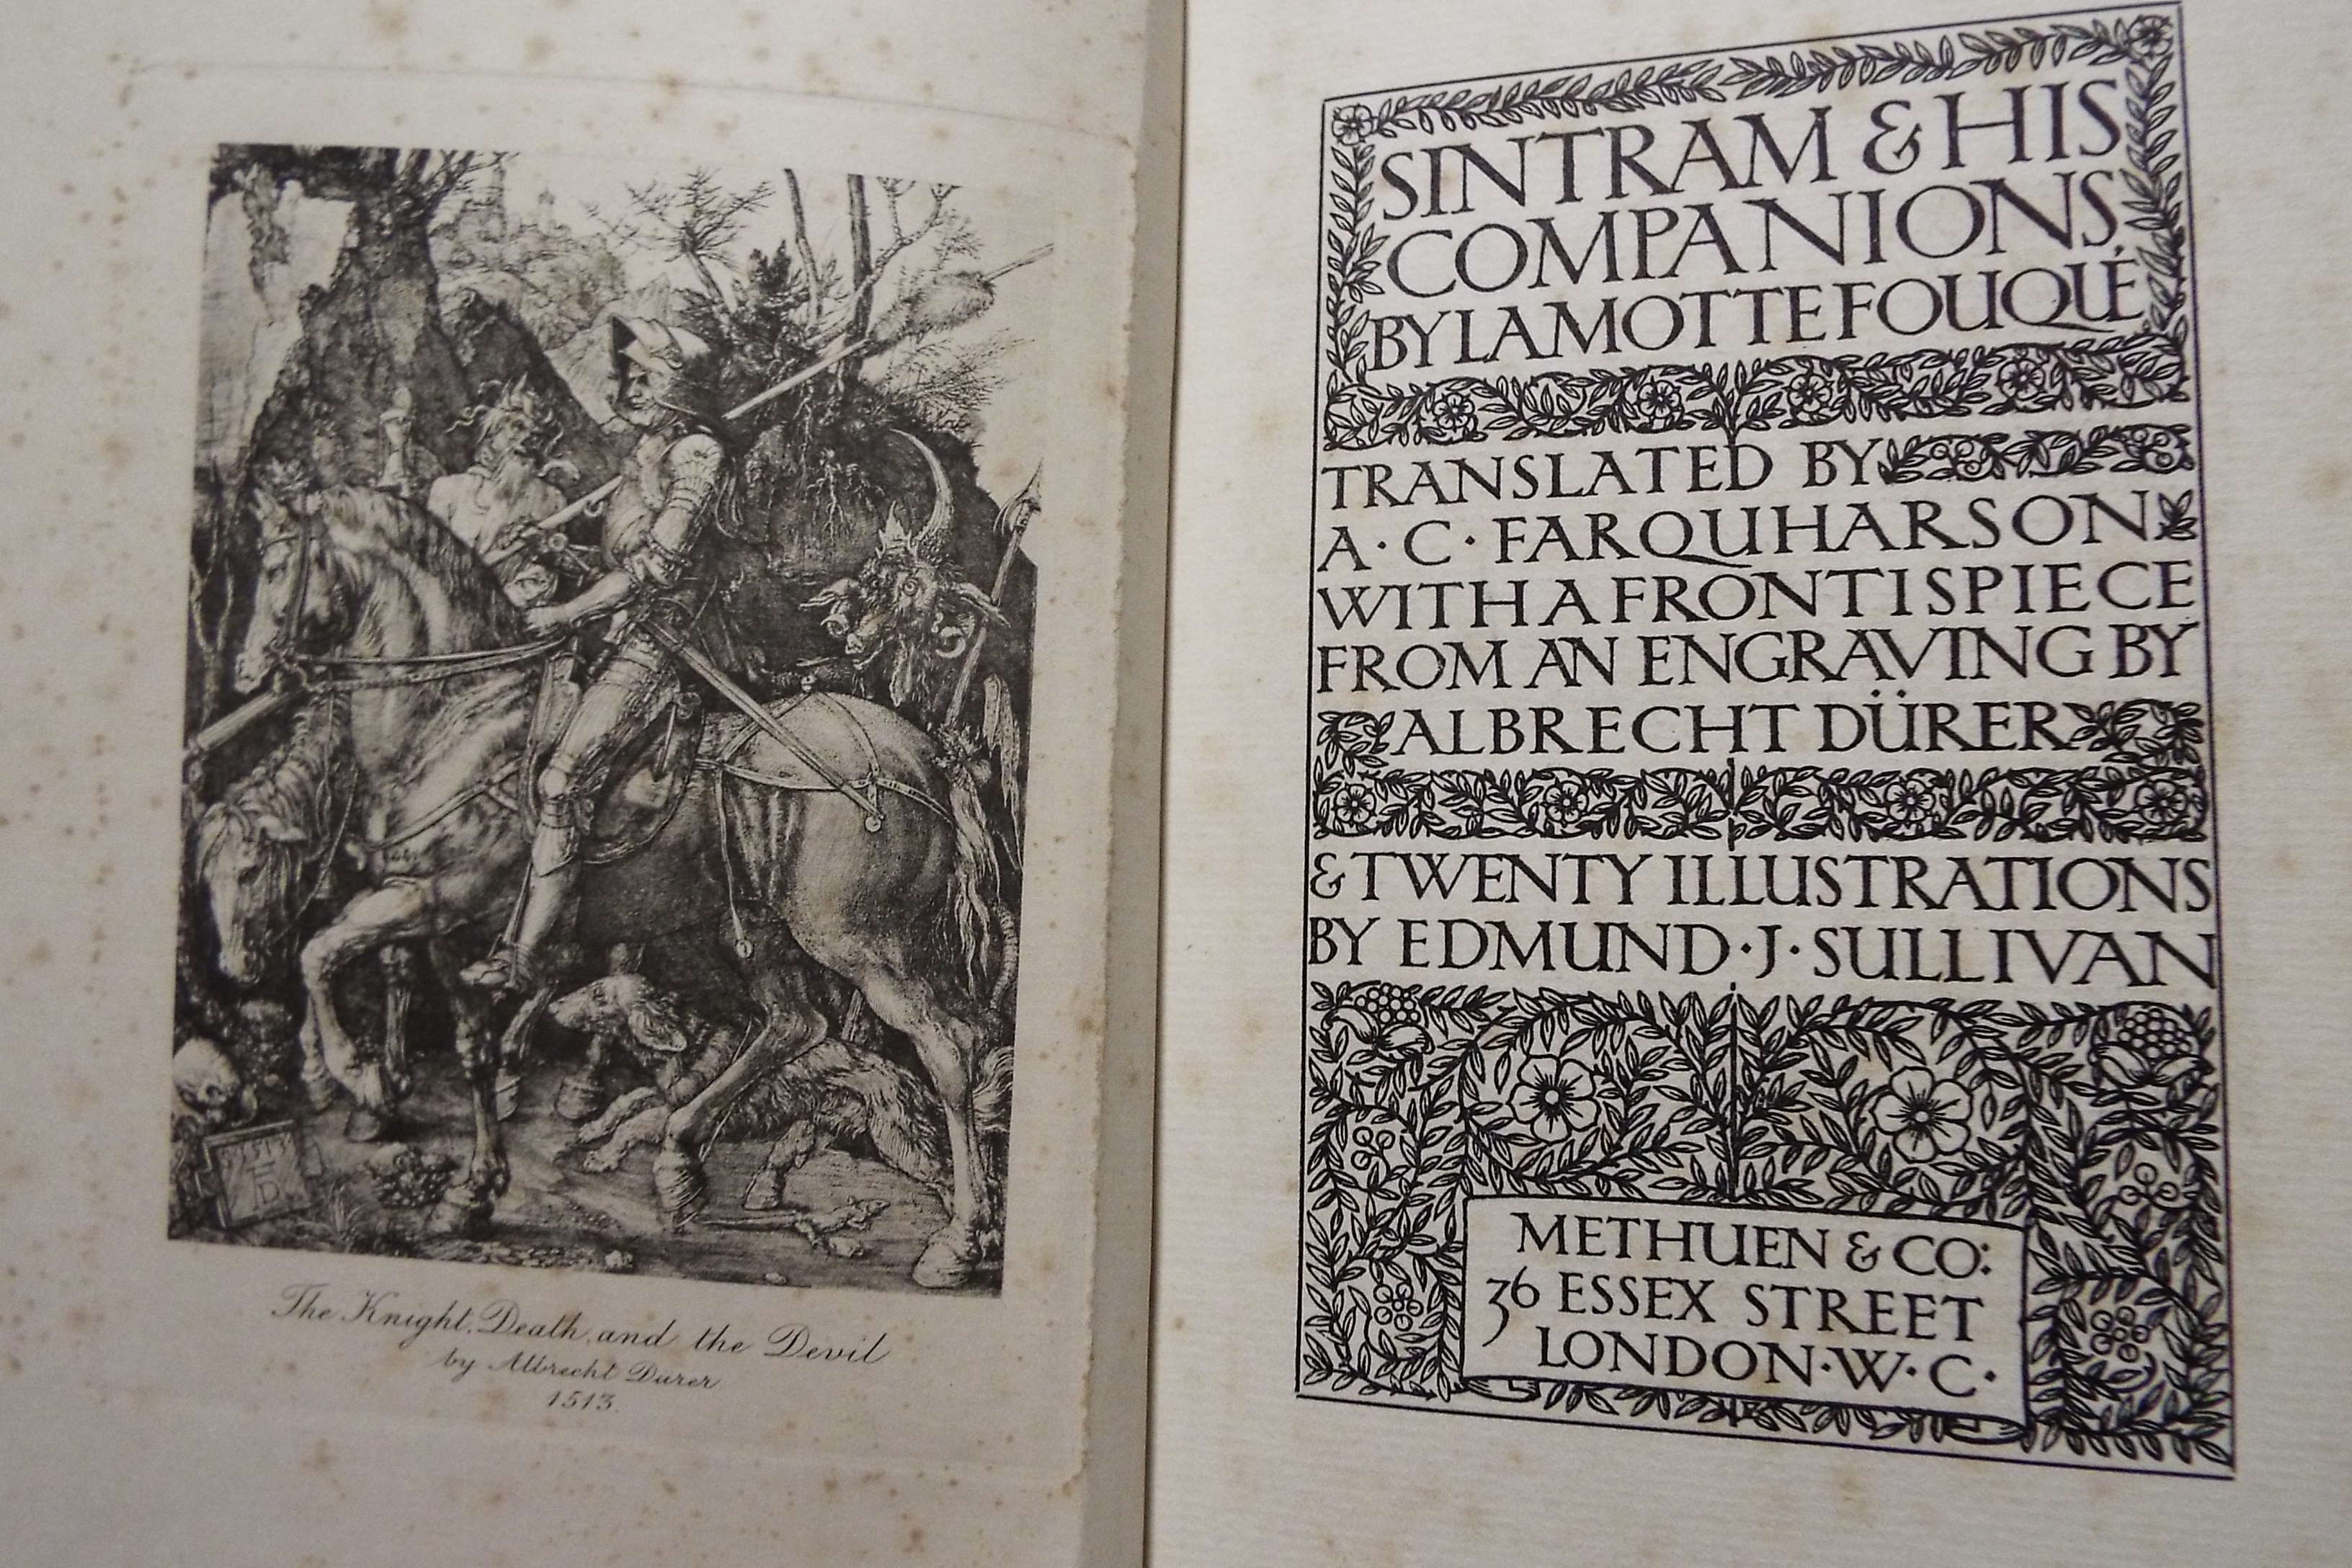 The Knight, Death, and the Devil
by Albrecht Dürer
1513.
SINTRAM & HIS
COMPANIONS,
BY LAMOTTE FOUQUÉ
TRANSLATED BY
A · C · FARQUHARSON
WITH A FRONTISPIECE
FROM AN ENGRAVING BY
ALBRECHT DÜRER
& TWENTY ILLUSTRATIONS
BY EDMUND · J · SULLIVAN
METHUEN & CO:
36 ESSEX STREET
LONDON · W · C ·